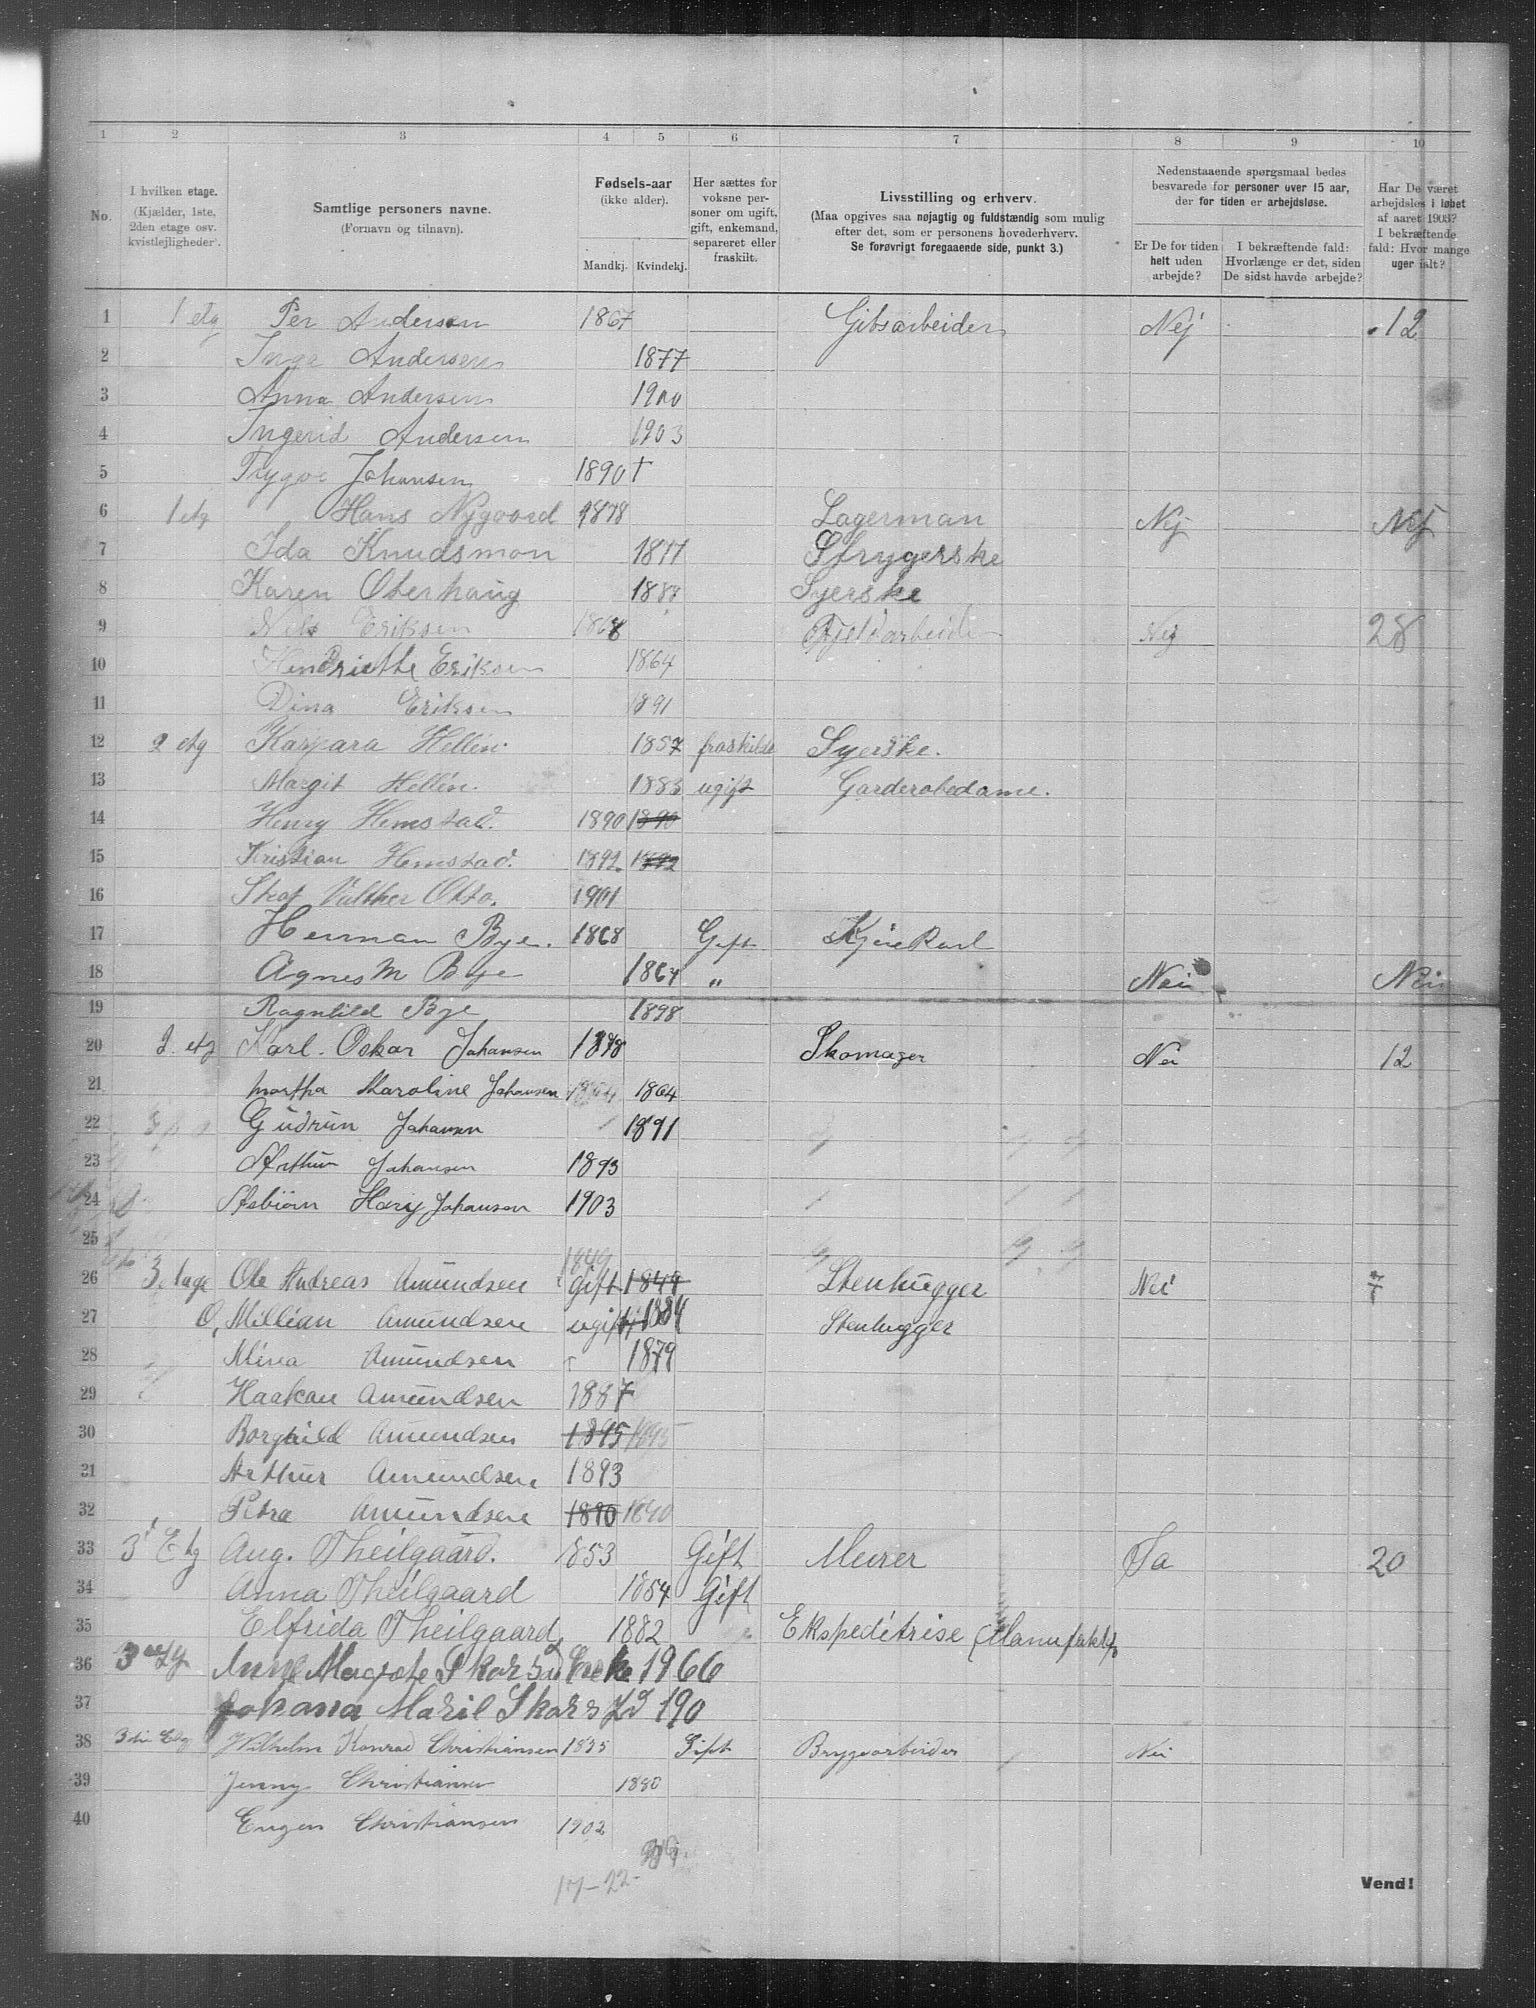 1 2 3 4 5 6 7 8 9 10
No.
I hvilken etage.
(Kjælder, 1ste, 2den etage osv. kvistlejligheder.)
Samtlige personers navne.
(Fornavn og tilnavn).
Fødsels-aar
(ikke alder).
Mandkj. Kvindekj.
Her sættes for voksne personer om ugift, gift, enkemand, separeret eller fraskilt.
Livsstilling og erhverv.
(Maa opgives saa nøjagtig og fuldstændig som mulig efter det, som er personens hovederhverv.
Se forøvrigt foregaaende side, punkt 3.)
Nedenstaaende spørgsmaal bedes besvarede for personer over 15 aar, der for tiden er arbejdsløse.
Er De for tiden helt uden arbejde?
I bekræftende fald: Hvorlænge er det, siden De sidst havde arbejde?
Har De været arbejdsløs i løbet af aaret 1903? I bekræftende fald: Hvor mange uger ialt?
1 1 etg Per Andersen 1867 Gibsarbeider Nej 12
2 Inga Andersen 1877
3 Anna Andersen 1900
4 Ingerid Andersen 1903
5 Trygve Johansen 1890 +
6 1 etg Hans Nygaard 1878 Lagerman Nej Nej
7 Ida Knudsmon 1877 Strygerske
8 Karen Oterhaug Syerske
9 Nils Eriksen 1868 Fjeldarbeider Nej 28
10 Hendriette Eriksen 1864
11 Dina Eriksen 1891
12 2 etg Kaspara Hellén 1857 fraskildt Syerske.
13 Margit Hellén. 1883 ugift Garderobedame.
14 Henry Hemstad. 1890 1890
15 Kristian Hemstad. 1892. 1892
16 Valther Otto. 1901
17 Herman Bye. 1868 Gift Kjørekarl
18 Agnes M Bye 1864 " Nei Nei
19 Ragnhild Bye 1898
20 2. etg Karl. Oskar Johansen Skomager Nei 12
21 Martha Karoline Johansen 1864 1864
22 Gudrun Johansen 1891
23 Arthur Johansen 1893
24 Asbiørn Hary Johansen 1903
25
1849
26 3. tage Ole Andreas Amundsen gift 1849 Stenhugger Nei
27 O, Millian Amundsen ugift 1884 Stenhugger
28 Mina Amundsen 1879
29 Haakan Amundsen 1887
30 Borghild Amundsen 1895 1895
31 Arthur Amundsen 1893
32 Petra Amundsen 1890 1890
33 3' Etg Aug. Theilgaard. 1853 Gift Murer Ja 20
34 Anna Theilgaard 1854 Gift
35 Elfrida Theilgaard, 1882 Ekspeditrise (Manufaktr)
36 3 Magrete Enke 1966
37 Johana Maril 190
38 3die Etg Wilhelm Konrad Christiansen Gift Bryggearbeider Nei
39 Jenny Christiansen 1880
40 Eugen Christiansen 1902
17-22-
Vend!